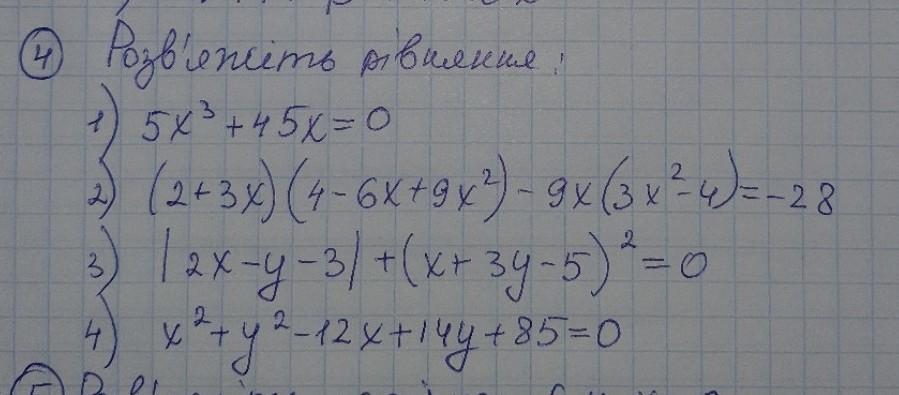 ④ Розв'яжіть рівняння:
1) 5x³ + 45x = 0
2) (2 + 3x)(4 - 6x + 9x²) - 9x(3x² - 4) = -28
3) |2x - y - 3| + (x + 3y - 5)² = 0
4) x² + y² - 12x + 14y + 85 = 0